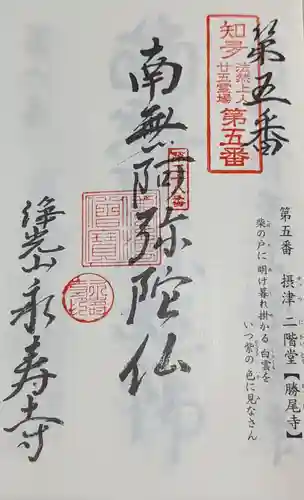 第五番
知多
法然上人
廿五霊場
第五番
第五番 摂津 二階堂【勝尾寺】
柴の戸に 明け暮れ掛かる 白雲を
いつ紫の 色に見なさん
南無阿弥陀仏
浄光山 永寿寺